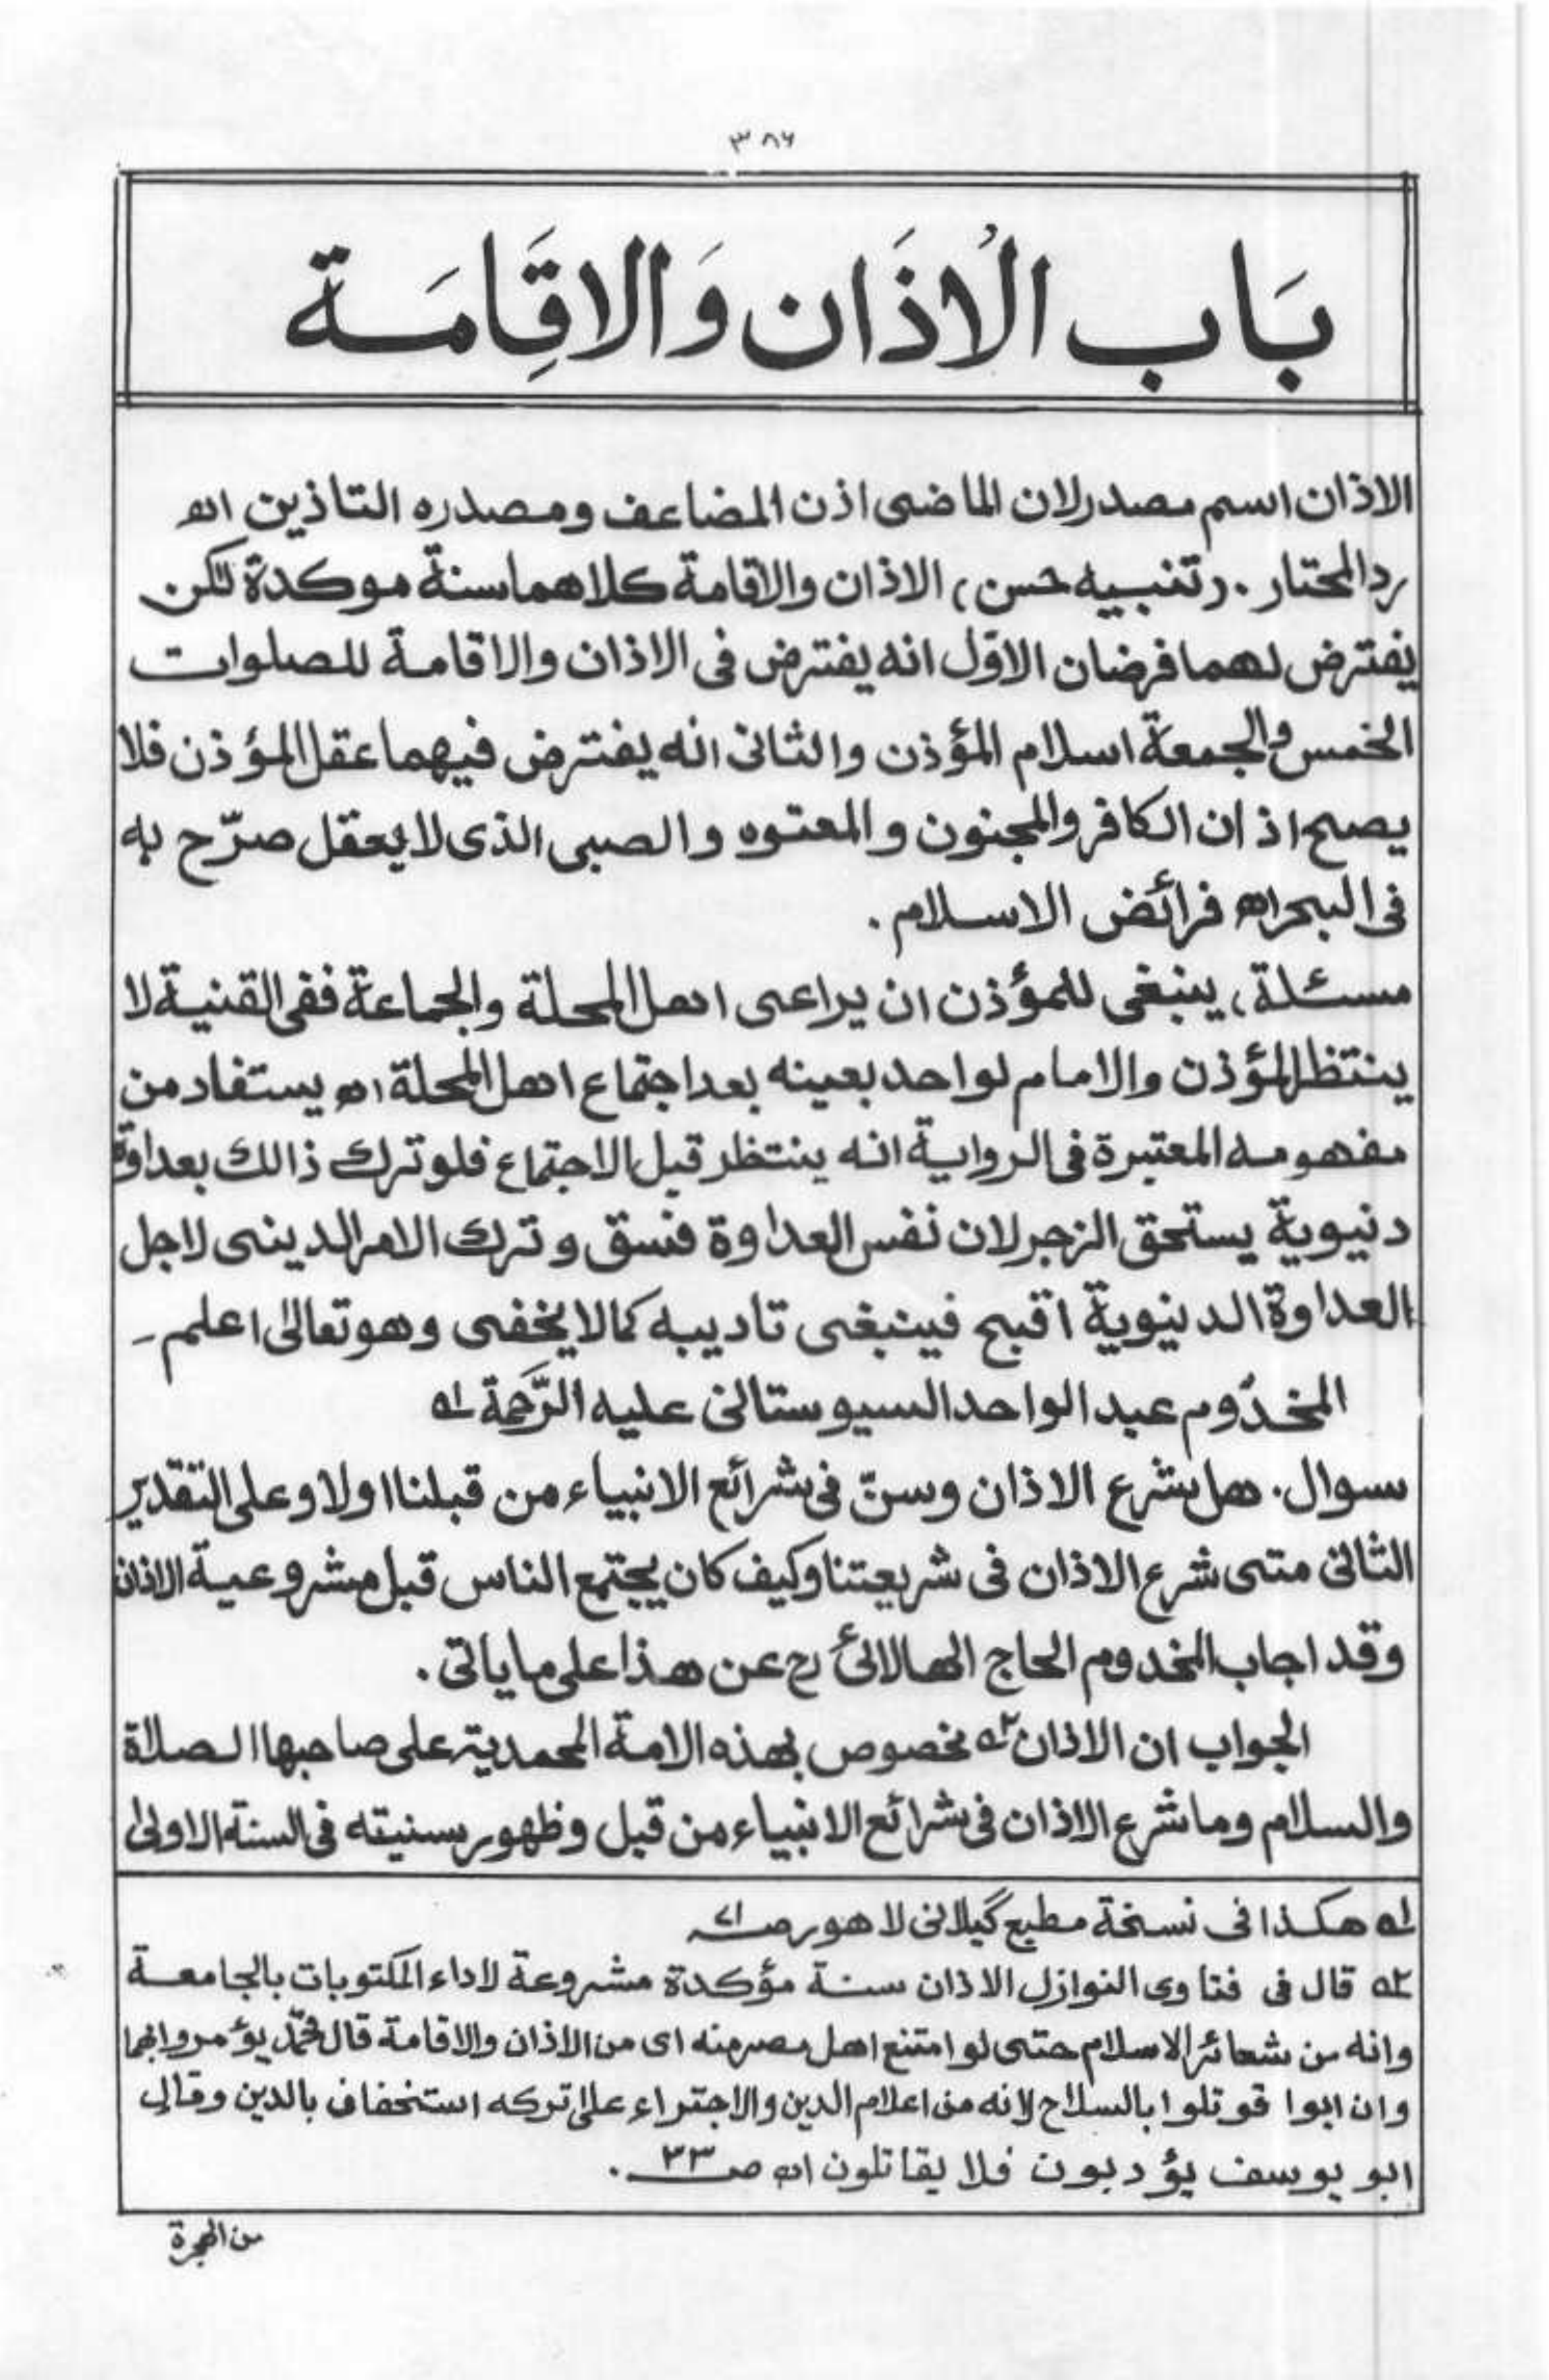 ٣٨٦
بَاب الْاذَان وَالاقِامَة
الاذان اسم مصدر لان الماضى اذن المضاعف ومصدره التاذين اه
رد المحتار . (تنبيه حسن) الاذان والاقامة كلاهما سنة موكدة لكن
يفترض لهما فرضان الاوّل انه يفترض فى الاذان والاقامة للصلوات
الخمس والجمعة اسلام المؤذن والثانى انه يفترض فيهما عقل المؤذن فلا
يصح اذان الكافر والمجنون والمعتوه والصبى الذى لا يعقل صرّح به
فى البحر اه فرائض الاسلام .
مسئلة، ينبغى للمؤذن ان يراعى اهل المحلة والجماعة ففى القنية لا
ينتظر المؤذن والامام لواحد بعينه بعد اجتماع اهل المحلة اه يستفاد من
مفهومه المعتبرة فى الرواية انه ينتظر قبل الاجتماع فلو ترك ذالك بعداوة
دنيوية يستحق الزجر لان نفس العداوة فسق وترك الامر الدينى لاجل
العداوة الدنيوية اقبح فينبغى تاديبه كما لا يخفى وهو تعالىٰ اعلم ـ
المخدُوم عبد الواحد السيوستانى عليه الرَّحمة ١ه
سوال . هل شرع الاذان وسنّ فى شرائع الانبياء من قبلنا اولا وعلى التقدير
الثانى متى شرع الاذان فى شريعتنا وكيف كان يجتمع الناس قبل مشروعية الاذان
وقد اجاب المخدوم الحاج الهالائى رح عن هذا على ما ياتى .
الجواب ان الاذان ٢ه مخصوص بهذه الامة المحمدية على صاحبها الصلاة
والسلام وما شرع الاذان فى شرائع الانبياء من قبل وظهور سنيته فى السنة الاولىٰ
١ه هكذا فى نسخة مطبع گيلانى لاهور ص
٢ه قال فى فتاوى النوازل الاذان سنة مؤكدة مشروعة لاداء المكتوبات بالجامعة
وانه من شعائر الاسلام حتى لو امتنع اهل مصر منه اى من الاذان والاقامة قال محمّد يؤمروا بهما
وان ابوا قوتلوا بالسلاح لانه من اعلام الدين والاجتراء على تركه استخفاف بالدين وقال
ابو يوسف يؤدبون فلا يقاتلون اه ص ٣٣ .
من الهجرة